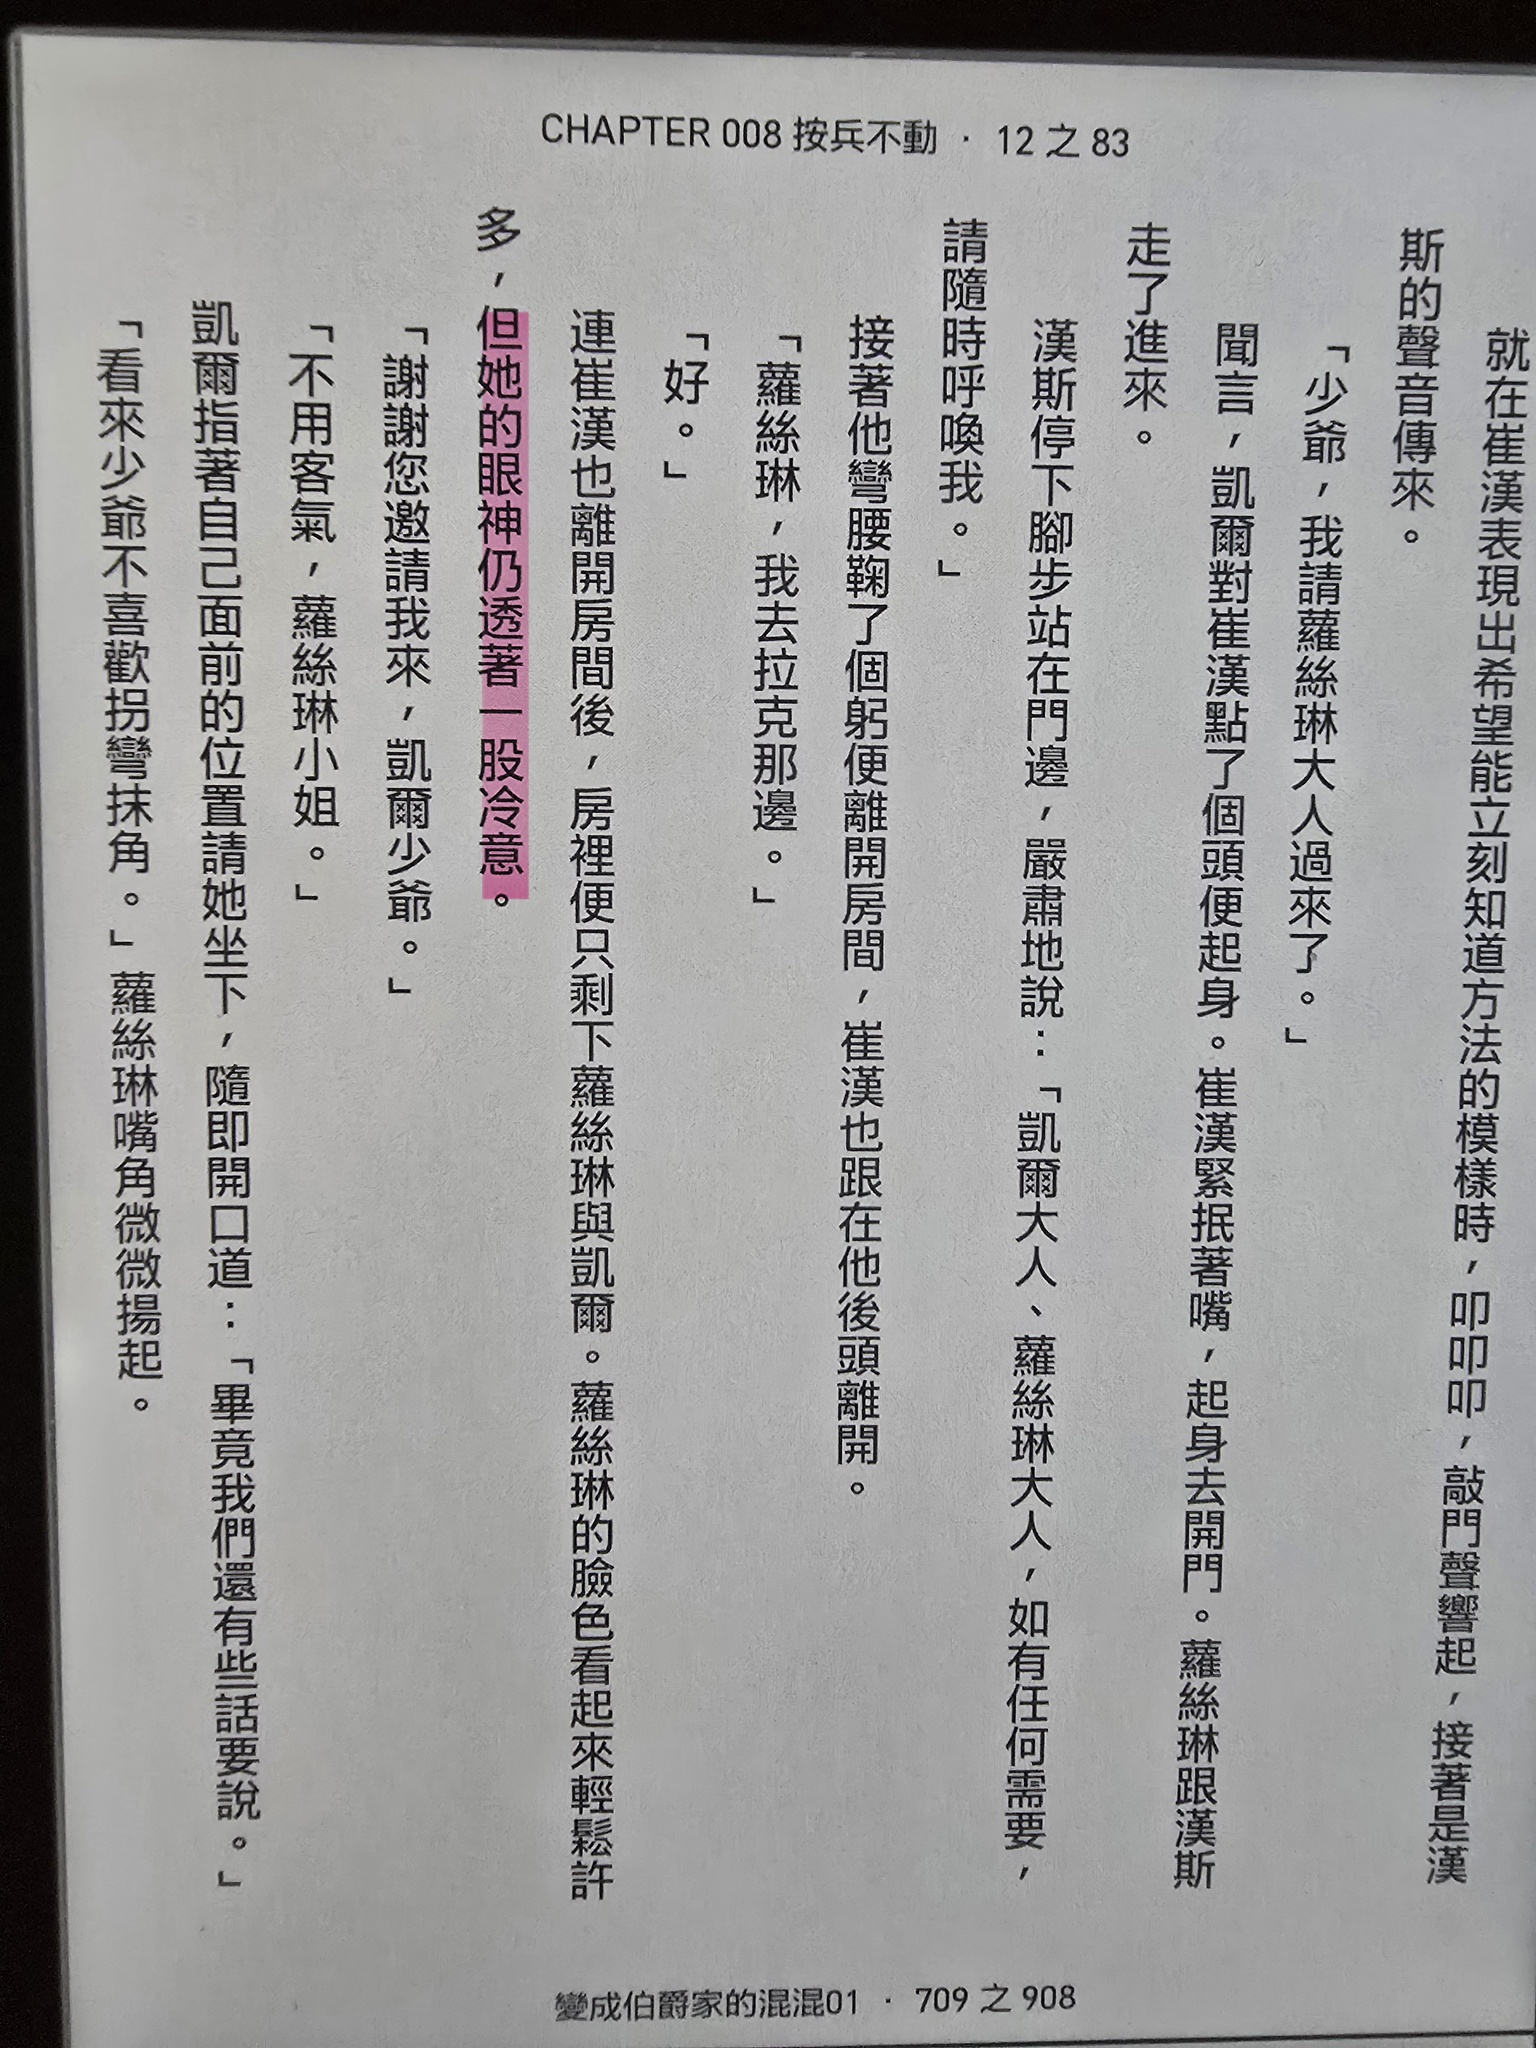 CHAPTER 008 按兵不動 · 12 之 83
就在崔漢表現出希望能立刻知道方法的模樣時，叩叩叩，敲門聲響起，接著是漢
斯的聲音傳來。
「少爺，我請蘿絲琳大人過來了。」
聞言，凱爾對崔漢點了個頭便起身。崔漢緊抿著嘴，起身去開門。蘿絲琳跟漢斯
走了進來。
漢斯停下腳步站在門邊，嚴肅地說：「凱爾大人、蘿絲琳大人，如有任何需要，
請隨時呼喚我。」
接著他彎腰鞠了個躬便離開房間，崔漢也跟在他後頭離開。
「蘿絲琳，我去拉克那邊。」
「好。」
連崔漢也離開房間後，房裡便只剩下蘿絲琳與凱爾。蘿絲琳的臉色看起來輕鬆許
多，但她的眼神仍透著一股冷意。
「謝謝您邀請我來，凱爾少爺。」
「不用客氣，蘿絲琳小姐。」
凱爾指著自己面前的位置請她坐下，隨即開口道：「畢竟我們還有些話要說。」
「看來少爺不喜歡拐彎抹角。」蘿絲琳嘴角微微揚起。
變成伯爵家的混混01 · 709 之 908